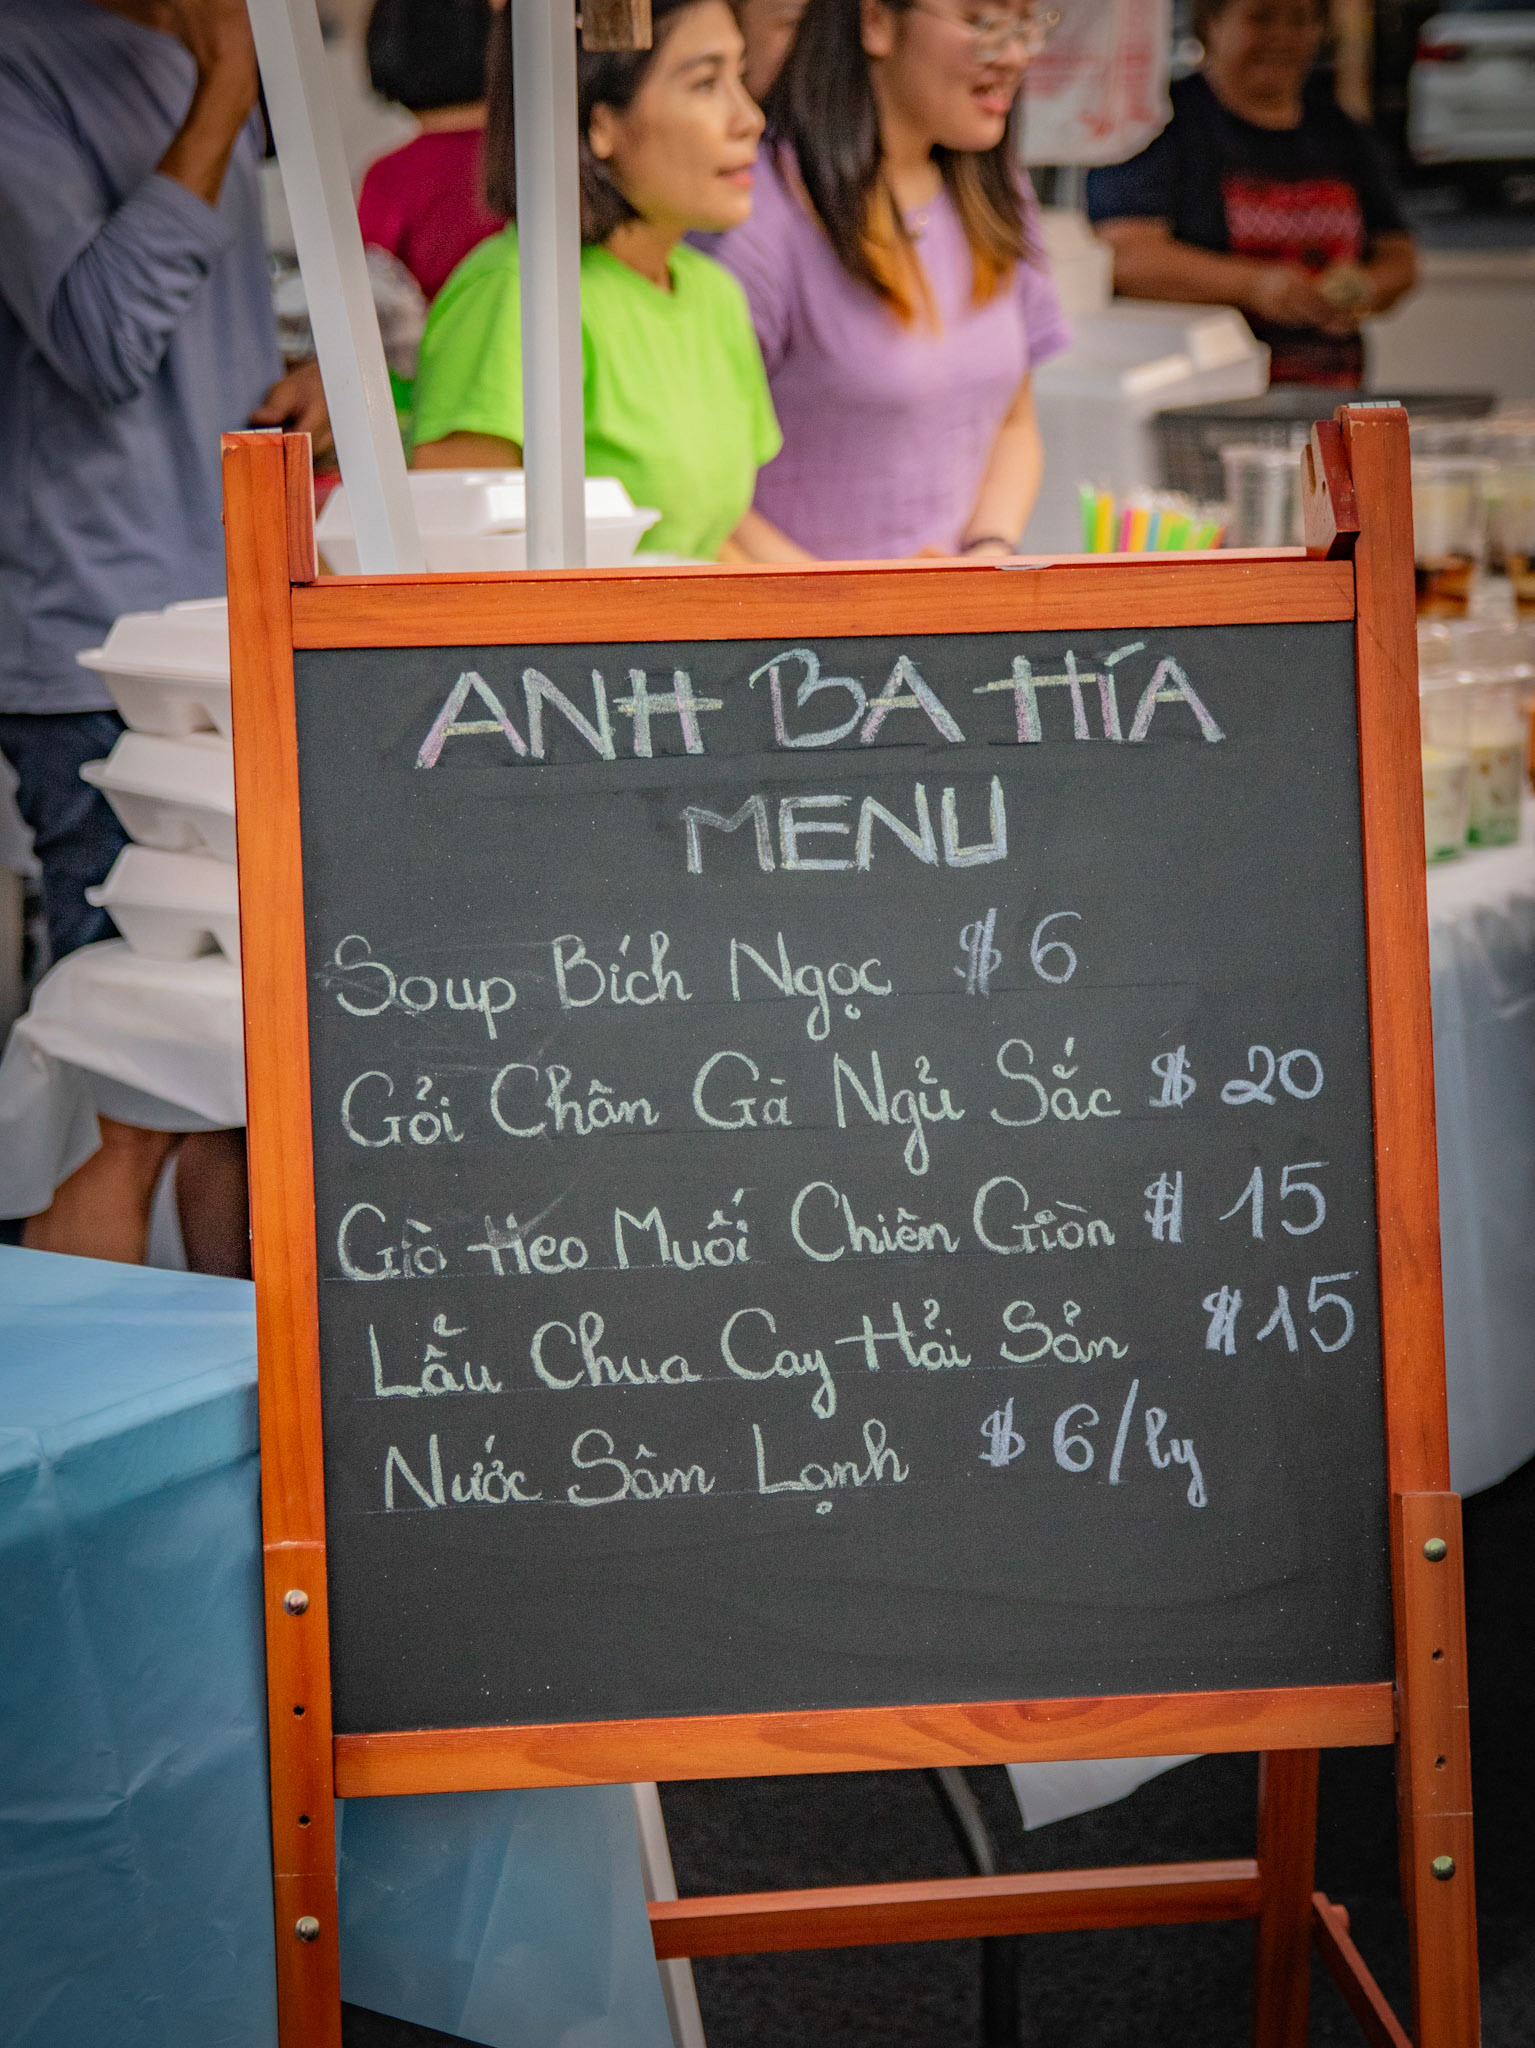 ANH BA HÍA
MENU
Soup Bích Ngọc $ 6
Gỏi Chân Gà Ngủ Sắc $ 20
Giò Heo Muối Chiên Giòn $ 15
Lẩu Chua Cay Hải Sản $ 15
Nước Sâm Lạnh $ 6/ly